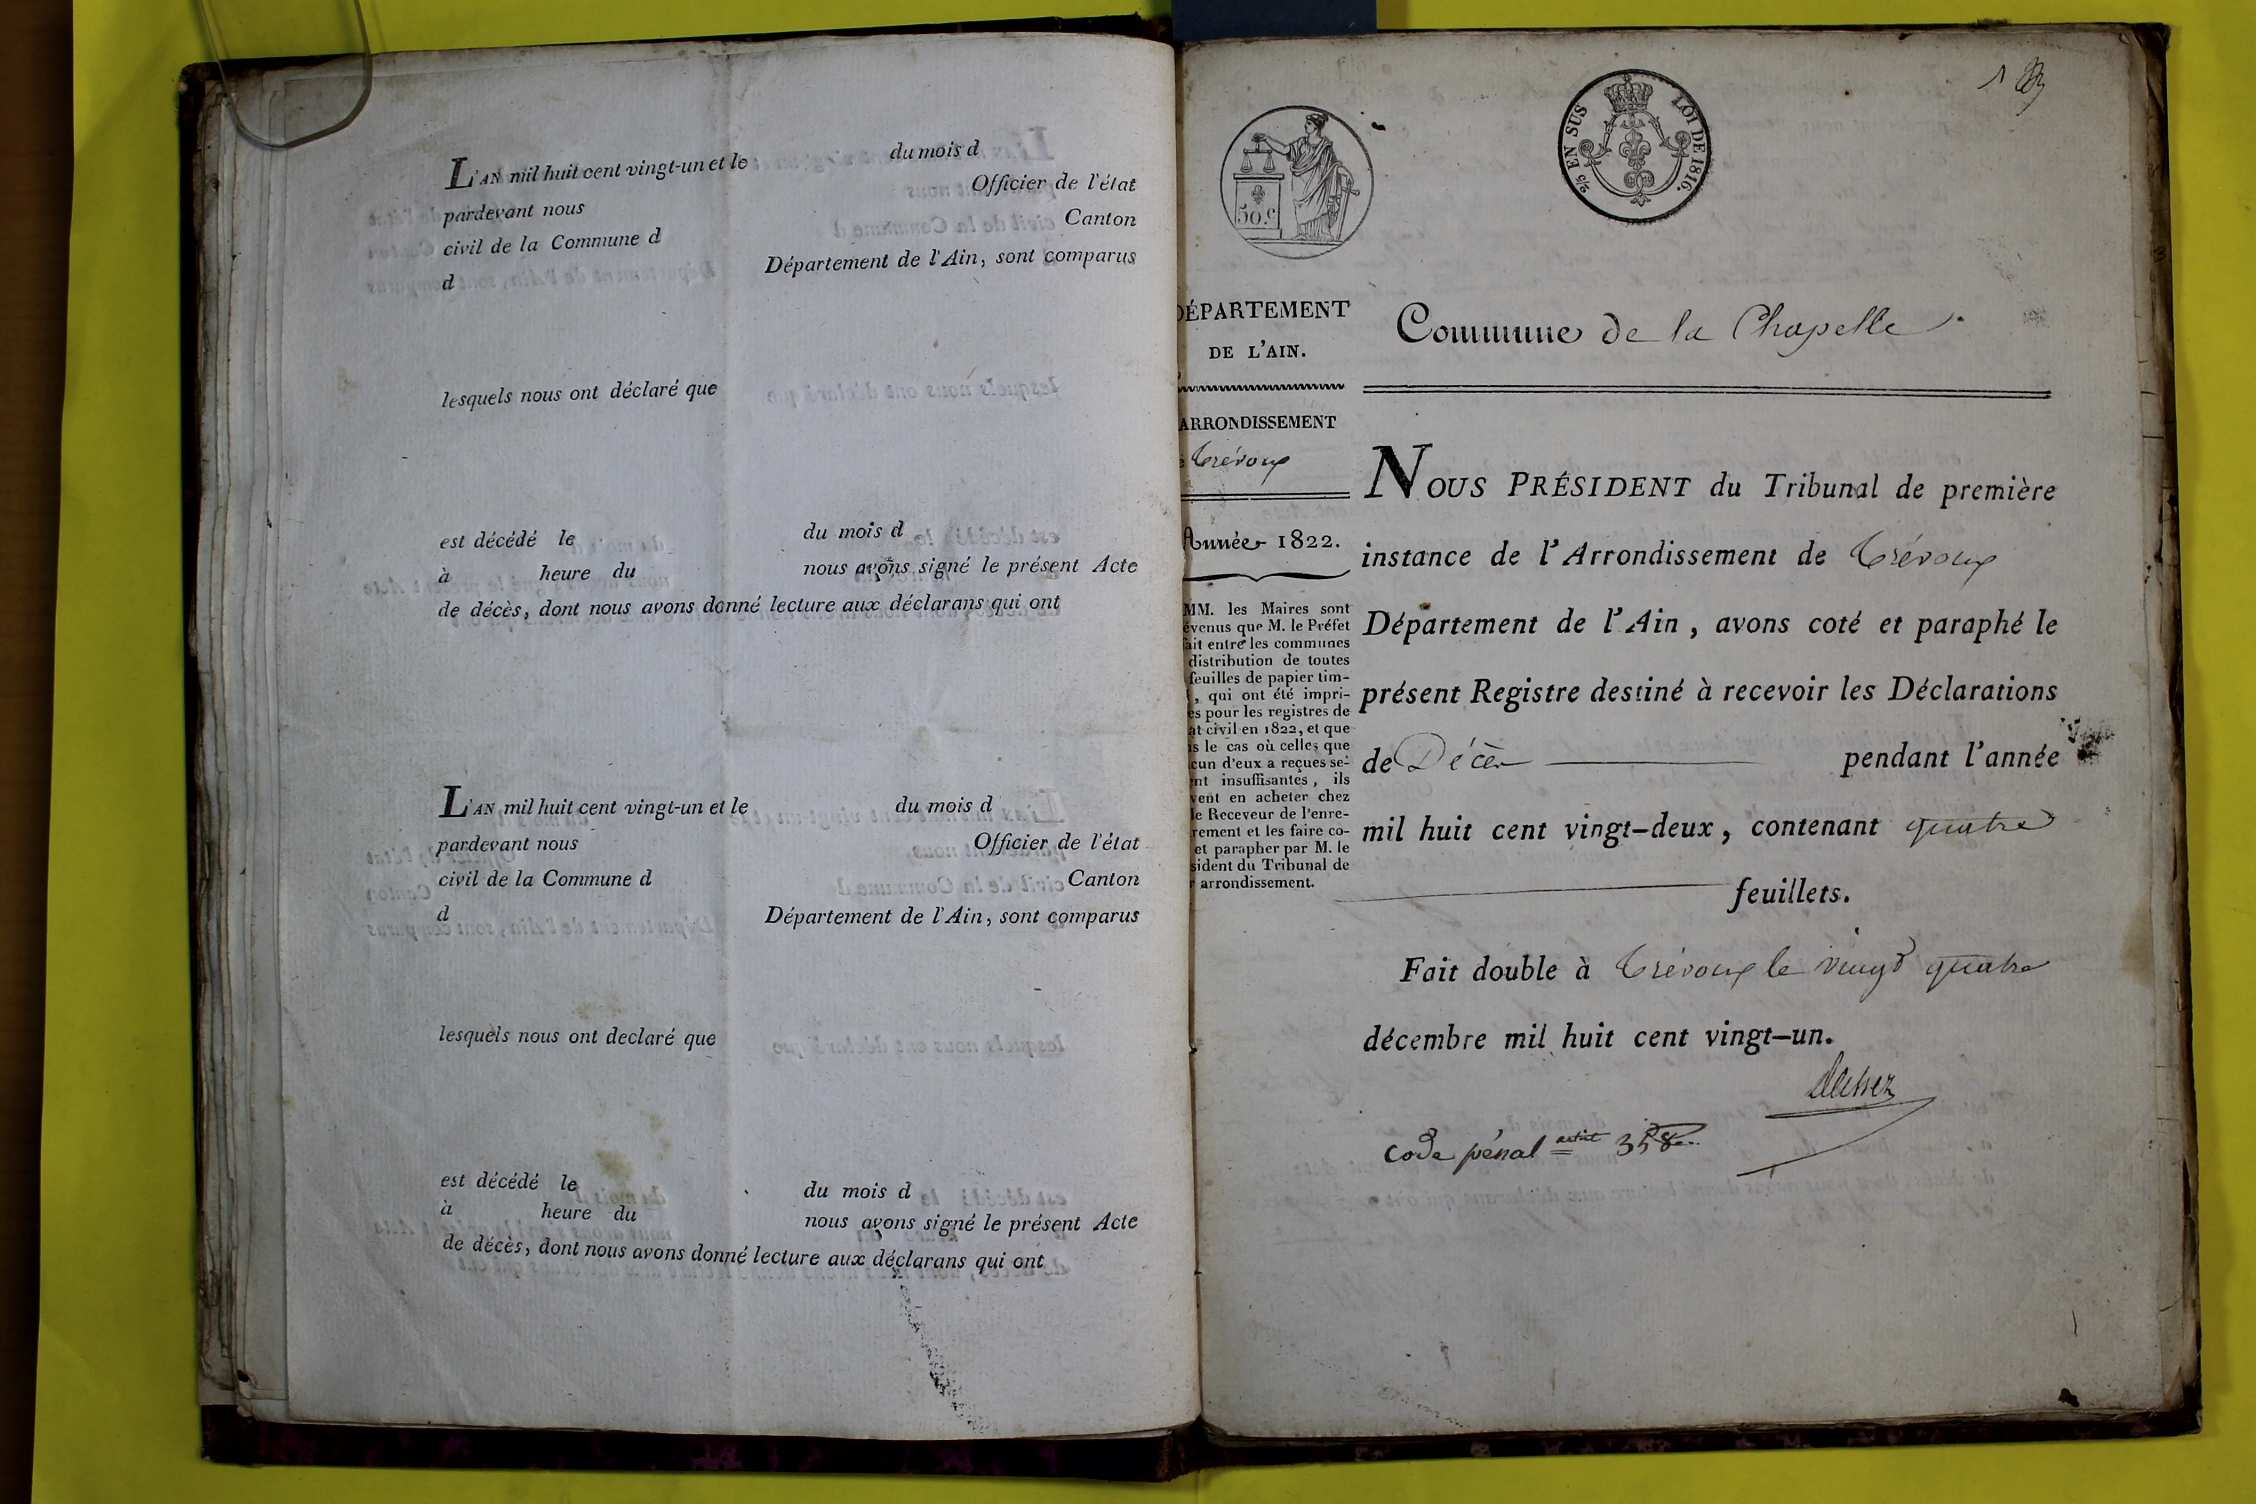 L'AN mil huit cent vingt-un et le du mois d
pardevant nous Officier de l'état
civil de la Commune d Canton
d Département de l'Ain, sont comparus
lesquels nous ont déclaré que
est décédé le du mois d
à heure du nous avons signé le présent Acte
de décès, dont nous avons donné lecture aux déclarans qui ont
L'AN mil huit cent vingt-un et le du mois d
pardevant nous Officier de l'état
civil de la Commune d Canton
d Département de l'Ain, sont comparus
lesquels nous ont declaré que
est décédé le du mois d
à heure du nous avons signé le présent Acte
de décès, dont nous avons donné lecture aux déclarans qui ont
1
50.c
2/5 EN SUS LOI DE 1816.
DÉPARTEMENT
DE L'AIN.
ARRONDISSEMENT
Trévoux
Année 1822.
MM. les Maires sont
évenus que M. le Préfet
ait entre les communes
distribution de toutes
feuilles de papier tim-
, qui ont été impri-
es pour les registres de
at civil en 1822, et que
s le cas où celles que
cun d'eux a reçues se-
nt insuffisantes, ils
vent en acheter chez
le Receveur de l'enre-
rement et les faire co-
et parapher par M. le
sident du Tribunal de
r arrondissement.
Commune de la Chapelle
NOUS PRÉSIDENT du Tribunal de première
instance de l'Arrondissement de Trévoux
Département de l'Ain, avons coté et paraphé le
présent Registre destiné à recevoir les Déclarations
de Décès pendant l'année
mil huit cent vingt-deux, contenant quatre
feuillets.
Fait double à Trévoux le vingt quatre
décembre mil huit cent vingt-un.
code pénal artict 358